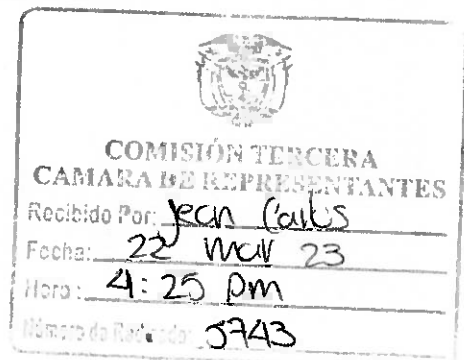 COMISIÓN TERCERA
CAMARA DE REPRESENTANTES
Recibido Por: Jean Carlos
Fecha: 22 mar 23
Hora: 4:25 pm
Número de Radicado: 5743